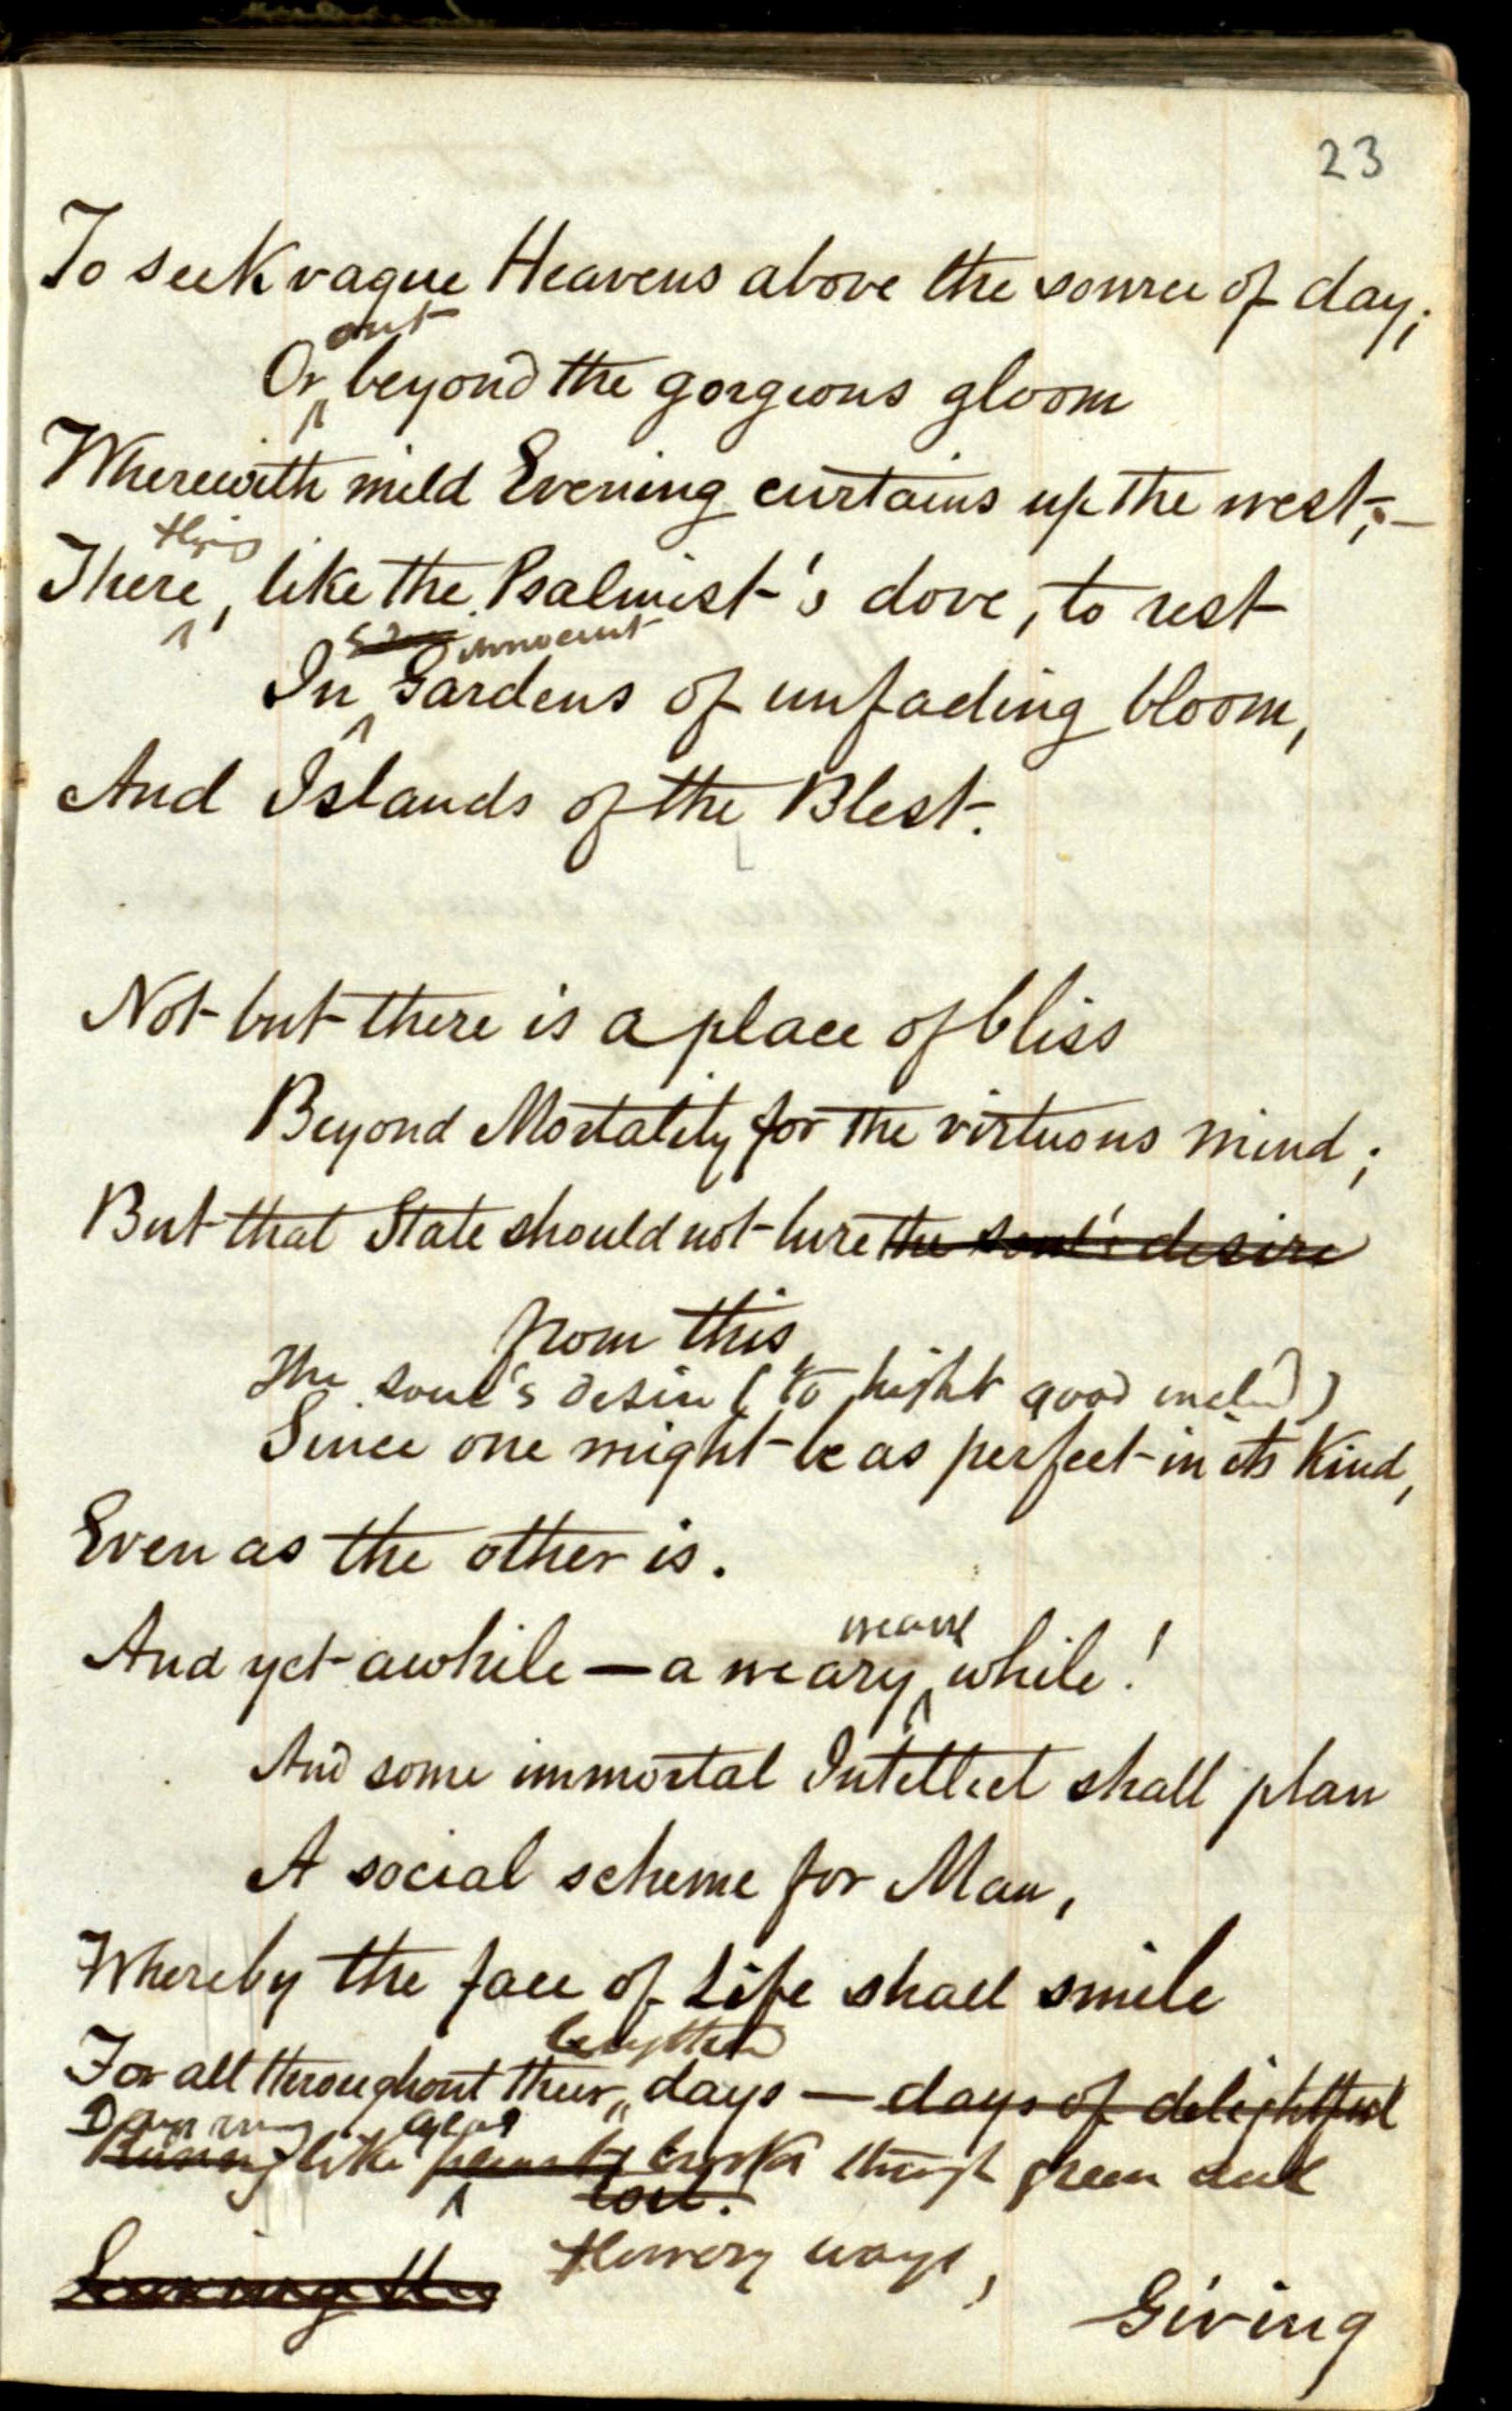 23
To seek vague Heavens above the source of day;
out
Or beyond the gorgeous gloom
Wherewith mild Evening curtains up the west;—
flying
There, like the Psalmist's dove, to rest
innocent
In Gardens of unfading bloom,
And Islands of the Blest.
Not but there is a place of bliss
Beyond Mortality for the virtuous mind;
But that State should not lure the soul's desire
from this,
The soul's desire (to hight good
Since one might be as perfect in its Kind,
Even as the other is.
weary
And yet awhile — a weary while!
And some immortal Intellect shall plan
A social scheme for Man,
Whereby the face of Life shall smile
lengthen'd
For all throughout their days — days of delightful
Running like brooks through green and
toil.
flowery ways,
Giving